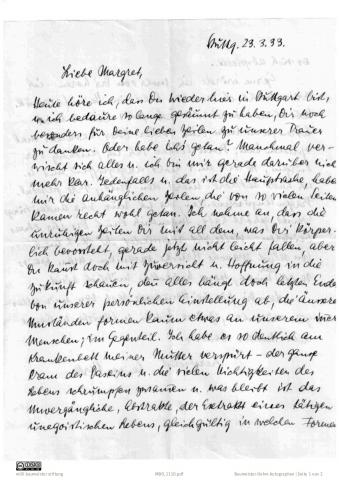 Stuttg. 29.3.39.
Liebe Margret,
Heute höre ich, dass Du wieder hier in Stuttgart bist,
u. ich bedaure so lange gesäumt zu haben, Dir noch
besonders für Deine lieben Zeilen zu unserer Trauer
zu danken. Oder habe ich's getan? Manchmal ver-
wischt sich alles u. ich bin mir gerade darüber nicht
mehr klar. Jedenfalls u. das ist die Hauptsache, haben
mir die anhänglichen Zeilen, die von so vielen Seiten
kamen recht wohl getan. Ich nehme an, dass die
unruhigen Zeiten Dir mit all dem, was Dir körper-
lich bevorsteht, gerade jetzt nicht leicht fallen, aber
Du kannst doch mit Zuversicht u. Hoffnung in die
Zukunft schauen, denn alles hängt doch letzten Endes
von unserer persönlichen Einstellung ab, die äusseren
Umstände formen kaum etwas an unserem
Menschen, im Gegenteil. Ich habe es so deutlich am
Krankenbett meiner Mutter verspürt – der ganze
Kram des Daseins u. die vielen Nichtigkeiten des
Lebens schrumpfen zusamen u. was bleibt ist das
Unvergängliche, Abstrakte, der Extrakt eines tätigen
unegoistischen Lebens, gleichgültig in welchen Formen
willi baumeister stiftung
MBG_1110.pdf
Baumeister-Rehm-Autographen | Seite 1 von 2